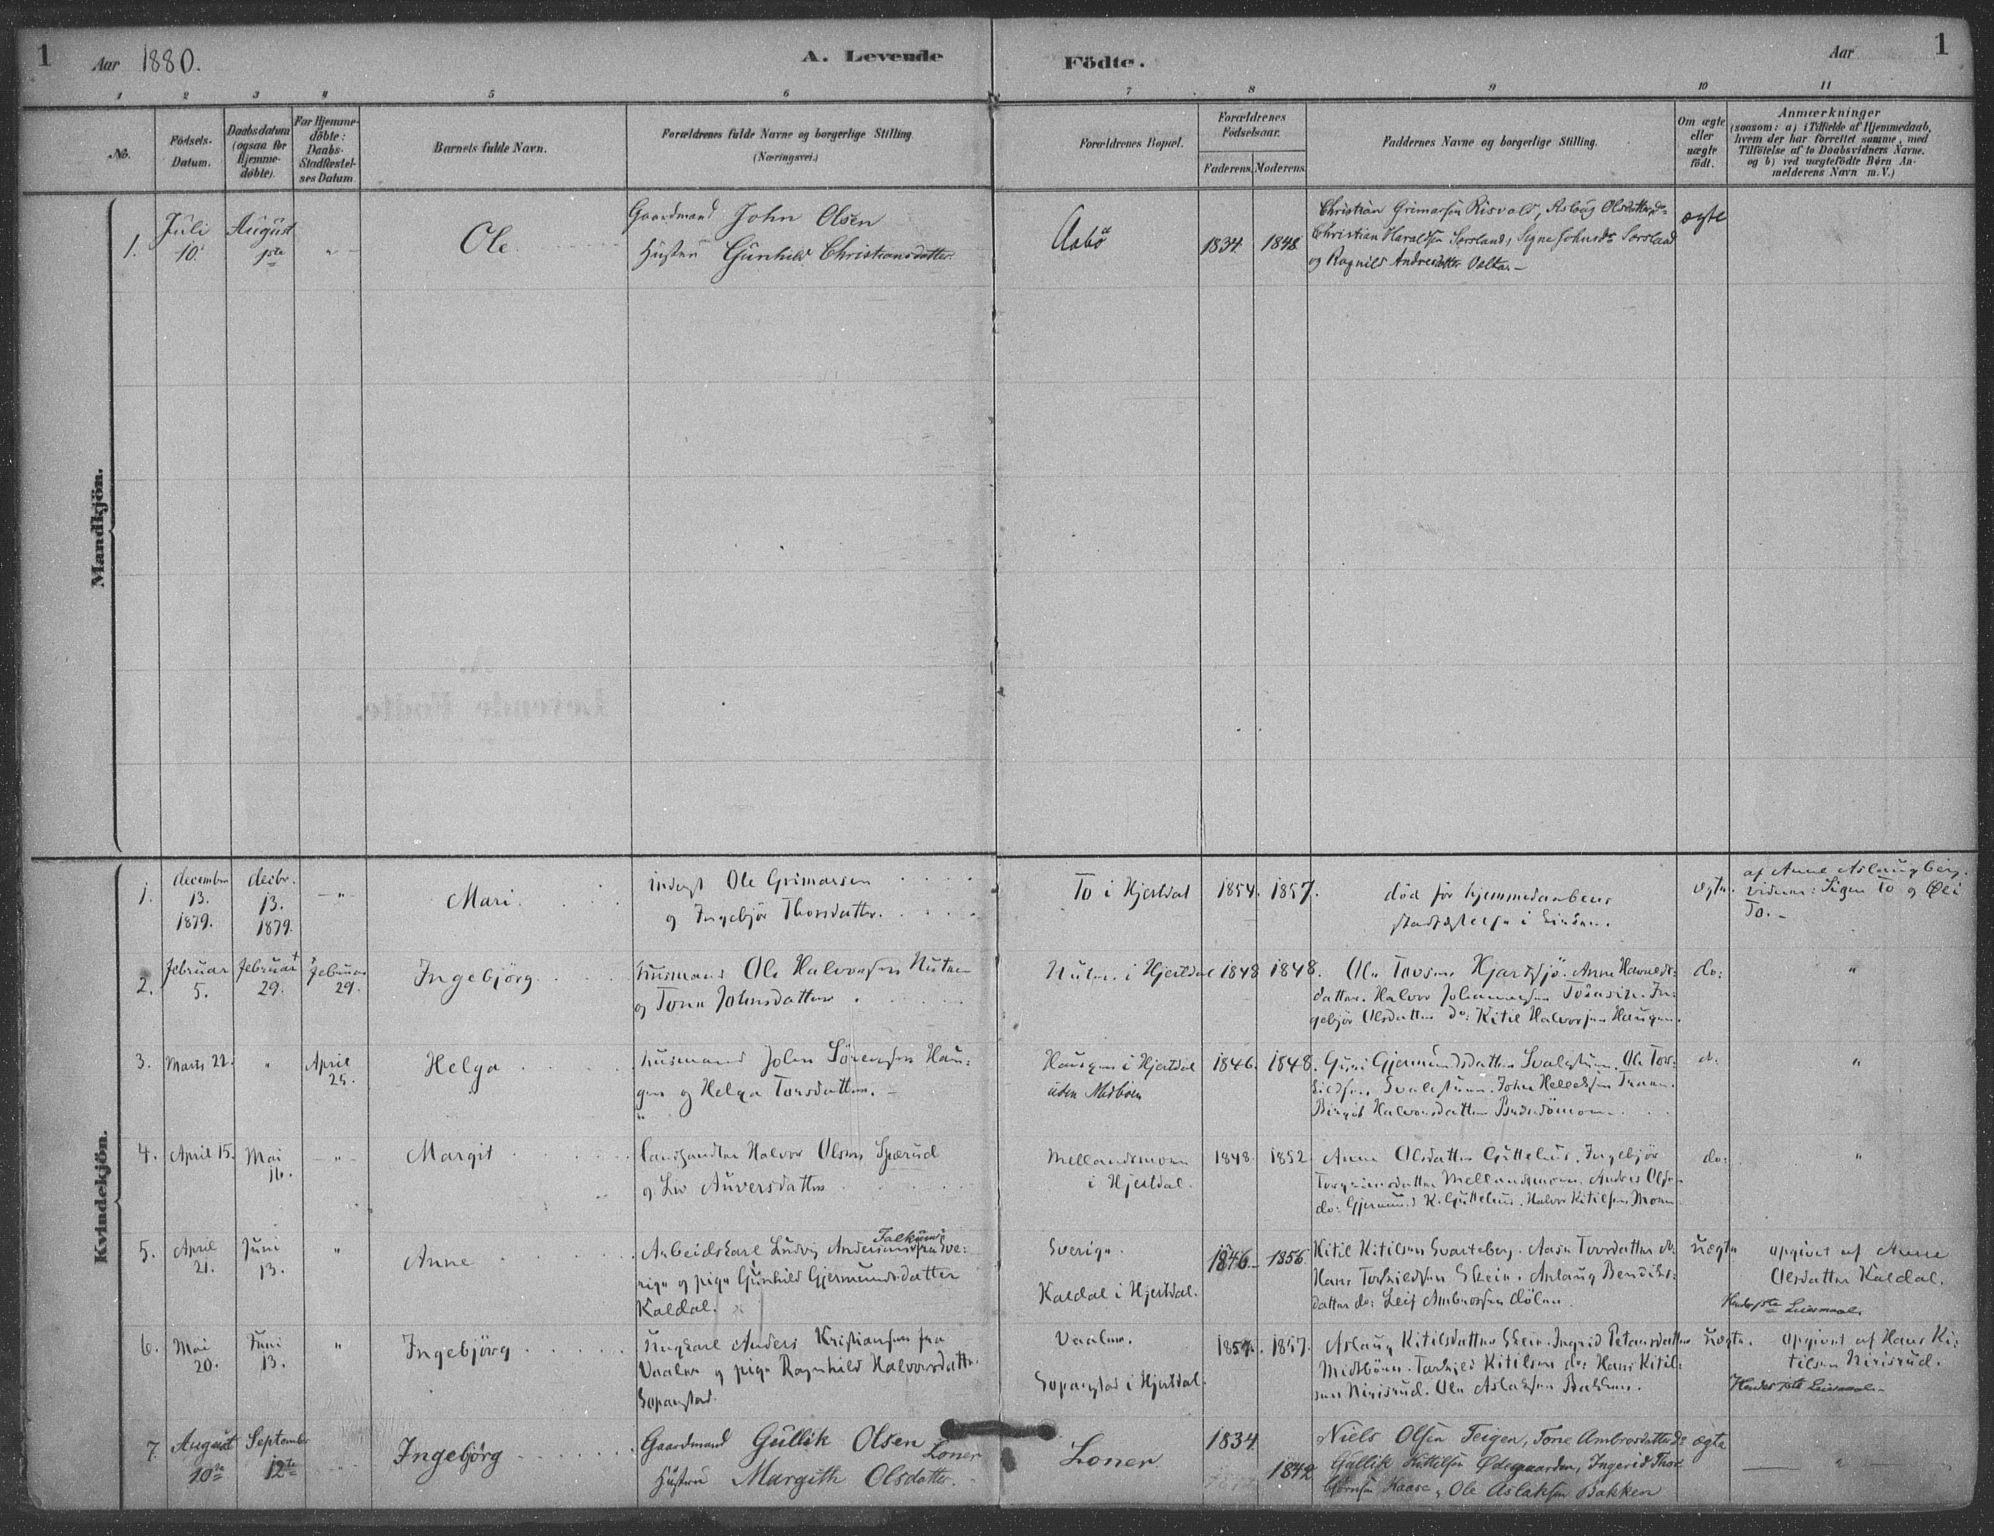 1 Aar 1880. A. Levende Födte. Aar 1
1 2 3 4 5 6 7 8 9 10 11
No.
Födsels-
Datum.
Daabsdatum
(ogsaa for
Hjemme-
døbte).
For Hjemme-
døbte:
Daabs-
Stadfæstel-
ses Datum
Barnets fulde Navn.
Forældrenes fulde Navne og borgerlige Stilling.
(Næringsvei.)
Forældrenes Bopæl.
Forældrenes
Födselsaar.
Faderens. Moderens.
Faddernes Navne og borgerlige Stilling.
Om ægte
eller
uægte
födt.
Anmærkninger
(saasom: a) i Tilfælde af Hjemmedaab,
hvem der har forrettet samme, med
Tilføielse af to Daabsvidners Navne.
og b) ved uægtefödte Børn An-
melderens Navn m. V.)
Mandkjön.
1.
Juli
10.
August
1ste
"
Ole
Gaardmand John Olsen
Hustru Gunhild Christiansdatter
Aabø
1834 1848
Christian Grimarsen Risvold, Aslaug Olsdatter do
Christian Haraldsen Sørsland, Signe Johnsd. Sørsland
og Ragnild Andresdatter
ægte
Kvindekjön.
1.
december
13.
1879.
decbr.
13.
1879.
"
Mari
inderst Ole Grimarsen
og Ingebjør Thorsdatter.
To i Hjertdal
1854. 1857.
død før hjemmedaabens
stadfæstelse i
ægte.
af Anne Aslaugberg.
vidner: Sigen To og
To.
2.
Februar
5.
Februar
29.
Februar
29.
Ingebjörg
husmand Ole Halvorsen
og Tone Johnsdatter
i Hjertdal
1848 1848.
Ole Tovsen Hjartsjø. Anne
datter. Halvor Johannesen In-
gebjör Olsdatter do: Kitil Halvorsen Haugen.
do:
"
3.
Marts 22.
"
April
25.
Helga
husmand John Sørensen Hau-
gen og Helga Torsdatter.
Haugen i Hjertdal
uden Midboen
1846. 1848.
Guri Gjermundsdatter Svalestuen. Ole Tor-
Svalestuen. John Helleksen
Birgit Halvorsdatter
do.
"
4.
April 15.
Mai
16.
"
Margit
Landhandler Halvor Olsen
og Liv Auversdatter
Mellandsmoen
i Hjertdal.
1848 1852
Anne Olsdatter Guttehus. Ingebjör
Torgrimsdatter Mellandsmoen. Andres Olsen
do: Gjermund K. Guttehus. Halvor Kitilsen Moen
do:
"
5.
April
21.
Juni
13.
"
Anne
Arbeidskarl Ludvig Andersen fra Sve-
rige og pige Gunhild Gjermundsdatter
Kaldal.
Sverige.
Kaldal i Hjertdal.
1846 1856
Kitil Kitilsen Svarteberg. Aase Tovsdatter do.
Hans Torkildsen Skein. Aslaug Bendiks-
datter do: Leif Ambrosen
uægte
opgivet af Anne
Olsdatter Kaldal.
Hendes 1ste Leiermaal
6.
Mai
20.
Juni
13.
"
Ingebjörg
ungkarl Anders Kristiansen fra
Vaaler og pige Ragnhild Halvorsdatter
Vaaler.
i Hjertdal.
1857. 1857.
Aslaug Kitilsdatter Skein. Ingrid Petersdatter
Midbøen. Torkild Kitilsen do: Hans Kitil-
sen Nirisrud. Ole Aslaksen Bakken.
uægte.
opgivet af Hans Ki-
tilsen Nirisrud.
Hendes 1ste Leiermaal
7.
August
10de
September
12te
Ingebjörg
Gaardmand Gullik Olsen Loner
Hustru Margith Olsdatter
Loner
1834
1842
Niels Olsen Teigen, Tone Ambrosdatter do
Gullik Kittilsen Ødegaarden, Ingerid Thor
bjørnsen Kaase, Ole Aslaksen Bakken
ægte
"